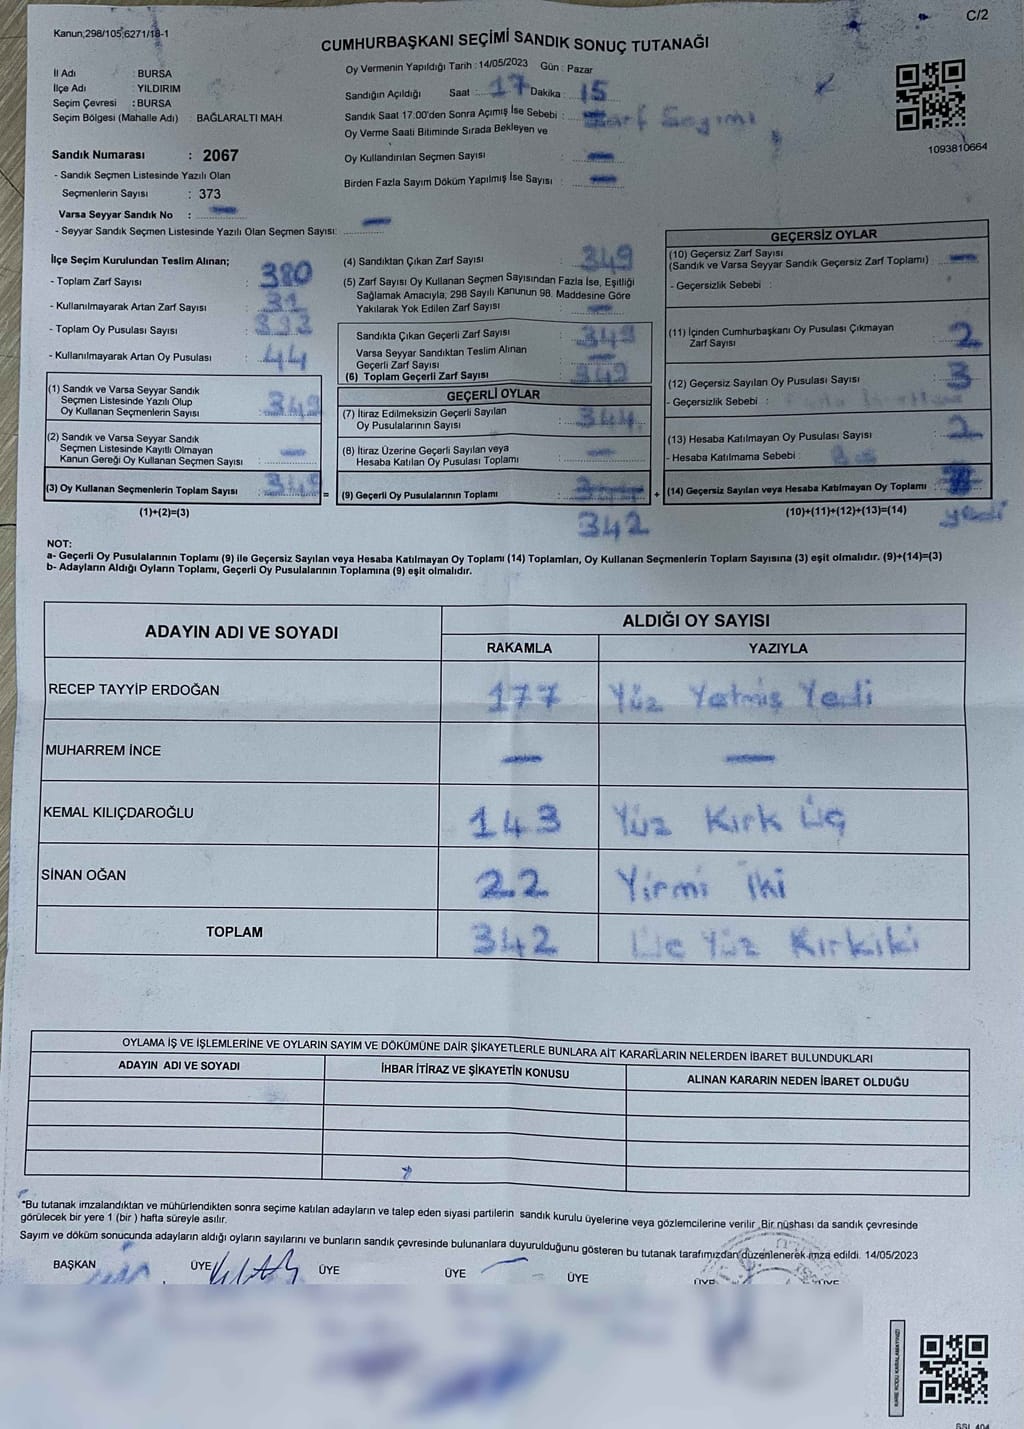 C/2
Kanun;298/105;6271/18-1
CUMHURBAŞKANI SEÇİMİ SANDIK SONUÇ TUTANAĞI
İl Adı : BURSA
İlçe Adı : YILDIRIM
Seçim Çevresi : BURSA
Seçim Bölgesi (Mahalle Adı) : BAĞLARALTI MAH.
Oy Vermenin Yapıldığı Tarih : 14/05/2023 Gün : Pazar
Sandığın Açıldığı Saat : 17 Dakika : 15
Sandık Saat 17:00'den Sonra Açımış İse Sebebi : Zarf Sayımı
Oy Verme Saati Bitiminde Sırada Bekleyen ve
Oy Kullandırılan Seçmen Sayısı : —
Birden Fazla Sayım Döküm Yapılmış İse Sayısı : —
1093810664
Sandık Numarası : 2067
- Sandık Seçmen Listesinde Yazılı Olan
Seçmenlerin Sayısı : 373
Varsa Seyyar Sandık No : —
- Seyyar Sandık Seçmen Listesinde Yazılı Olan Seçmen Sayısı: —
İlçe Seçim Kurulundan Teslim Alınan;
- Toplam Zarf Sayısı : 380
- Kullanılmayarak Artan Zarf Sayısı : 31
- Toplam Oy Pusulası Sayısı :
- Kullanılmayarak Artan Oy Pusulası : 44
(1) Sandık ve Varsa Seyyar Sandık
Seçmen Listesinde Yazılı Olup
Oy Kullanan Seçmenlerin Sayısı : 349
(2) Sandık ve Varsa Seyyar Sandık
Seçmen Listesinde Kayıtlı Olmayan
Kanun Gereği Oy Kullanan Seçmen Sayısı : —
(3) Oy Kullanan Seçmenlerin Toplam Sayısı : 349 =
(1)+(2)=(3)
(4) Sandıktan Çıkan Zarf Sayısı : 349
(5) Zarf Sayısı Oy Kullanan Seçmen Sayısından Fazla İse, Eşitliği
Sağlamak Amacıyla; 298 Sayılı Kanunun 98. Maddesine Göre
Yakılarak Yok Edilen Zarf Sayısı : —
Sandıkta Çıkan Geçerli Zarf Sayısı : 349
Varsa Seyyar Sandıktan Teslim Alınan
Geçerli Zarf Sayısı : —
(6) Toplam Geçerli Zarf Sayısı : 349
GEÇERLİ OYLAR
(7) İtiraz Edilmeksizin Geçerli Sayılan
Oy Pusulalarının Sayısı : 344
(8) İtiraz Üzerine Geçerli Sayılan veya
Hesaba Katılan Oy Pusulası Toplamı : —
(9) Geçerli Oy Pusulalarının Toplamı : +
342
GEÇERSİZ OYLAR
(10) Geçersiz Zarf Sayısı
(Sandık ve Varsa Seyyar Sandık Geçersiz Zarf Toplamı) : —
- Geçersizlik Sebebi :
(11) İçinden Cumhurbaşkanı Oy Pusulası Çıkmayan
Zarf Sayısı : 2
(12) Geçersiz Sayılan Oy Pusulası Sayısı : 3
- Geçersizlik Sebebi :
(13) Hesaba Katılmayan Oy Pusulası Sayısı : 2
- Hesaba Katılmama Sebebi : Boş
(14) Geçersiz Sayılan veya Hesaba Katılmayan Oy Toplamı :
(10)+(11)+(12)+(13)=(14) yedi
NOT:
a- Geçerli Oy Pusulalarının Toplamı (9) ile Geçersiz Sayılan veya Hesaba Katılmayan Oy Toplamı (14) Toplamları, Oy Kullanan Seçmenlerin Toplam Sayısına (3) eşit olmalıdır. (9)+(14)=(3)
b- Adayların Aldığı Oyların Toplamı, Geçerli Oy Pusulalarının Toplamına (9) eşit olmalıdır.
ADAYIN ADI VE SOYADI
ALDIĞI OY SAYISI
RAKAMLA YAZIYLA
RECEP TAYYİP ERDOĞAN 177 Yüz Yetmiş Yedi
MUHARREM İNCE — —
KEMAL KILIÇDAROĞLU 143 Yüz Kırk Üç
SİNAN OĞAN 22 Yirmi İki
TOPLAM 342 Üç Yüz Kırkiki
OYLAMA İŞ VE İŞLEMLERİNE VE OYLARIN SAYIM VE DÖKÜMÜNE DAİR ŞİKAYETLERLE BUNLARA AİT KARARLARIN NELERDEN İBARET BULUNDUKLARI
ADAYIN ADI VE SOYADI İHBAR İTİRAZ VE ŞİKAYETİN KONUSU ALINAN KARARIN NEDEN İBARET OLDUĞU
*Bu tutanak imzalandıktan ve mühürlendikten sonra seçime katılan adayların ve talep eden siyasi partilerin sandık kurulu üyelerine veya gözlemcilerine verilir .Bir nüshası da sandık çevresinde
görülecek bir yere 1 (bir ) hafta süreyle asılır.
Sayım ve döküm sonucunda adayların aldığı oyların sayılarını ve bunların sandık çevresinde bulunanlara duyurulduğunu gösteren bu tutanak tarafımızdan düzenlenerek imza edildi. 14/05/2023
BAŞKAN ÜYE ÜYE ÜYE ÜYE ÜYE ÜYE